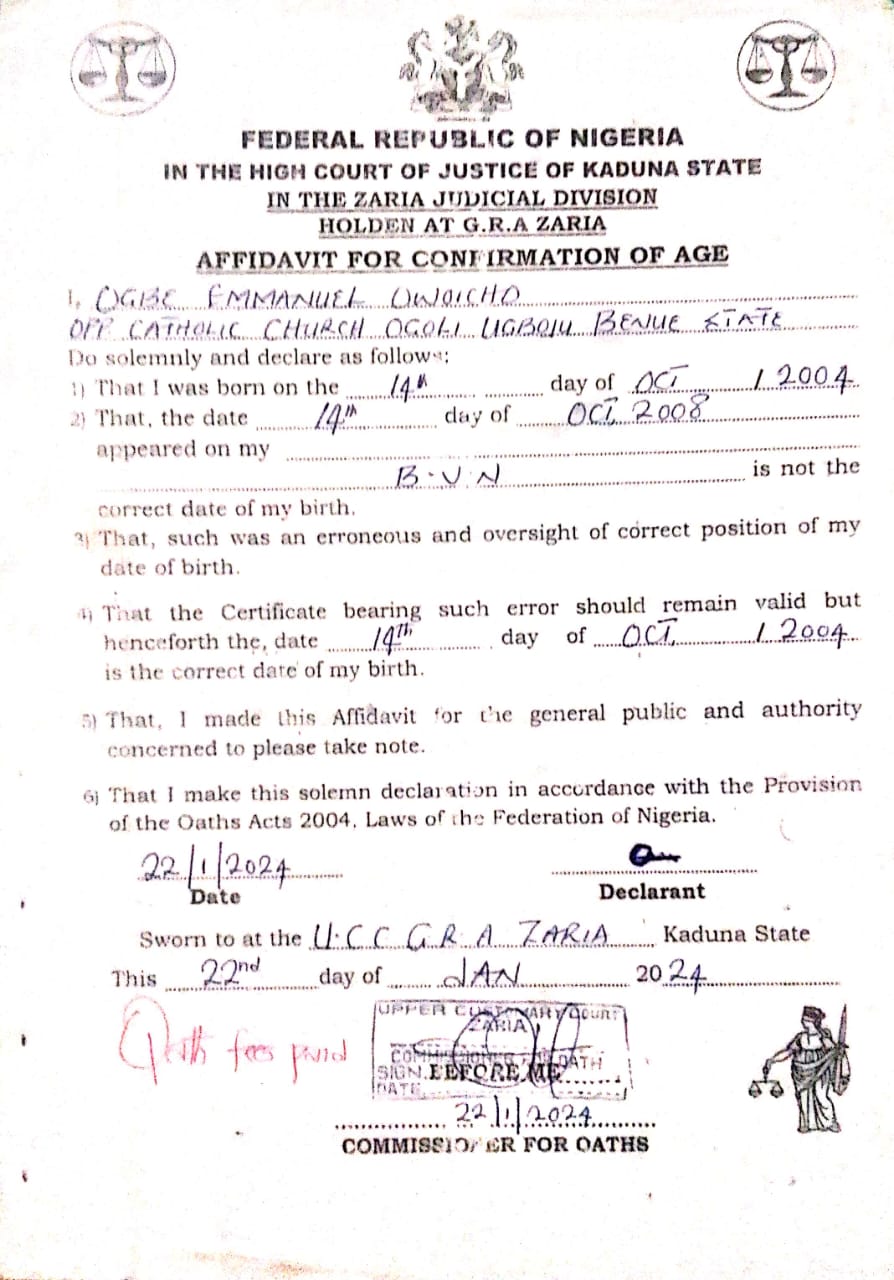 FEDERAL REPUBLIC OF NIGERIA
IN THE HIGH COURT OF JUSTICE OF KADUNA STATE
IN THE ZARIA JUDICIAL DIVISION
HOLDEN AT G.R.A ZARIA
AFFIDAVIT FOR CONFIRMATION OF AGE
I, OGBE EMMANUEL OWOICHO
OPP CATHOLIC CHURCH OGOLI UGBOJU BENUE STATE
Do solemnly and declare as follows:
1) That I was born on the 14th day of OCT / 2004
2) That, the date 14th day of OCT, 2008
appeared on my
B.V.N is not the
correct date of my birth.
3) That, such was an erroneous and oversight of correct position of my
date of birth.
4) That the Certificate bearing such error should remain valid but
henceforth the, date 14th day of OCT, / 2004
is the correct date of my birth.
5) That, I made this Affidavit for the general public and authority
concerned to please take note.
6) That I make this solemn declaration in accordance with the Provision
of the Oaths Acts 2004, Laws of the Federation of Nigeria.
22/1/2024
Date Declarant
Sworn to at the U.C.C G.R.A ZARIA Kaduna State
This 22nd day of JAN 2024
Oath fees paid
UPPER CUSTOMARY COURT
ZARIA
COMMISSIONER FOR OATH
SIGN. BEFORE ME
DATE
22/1/2024
COMMISSIONER FOR OATHS